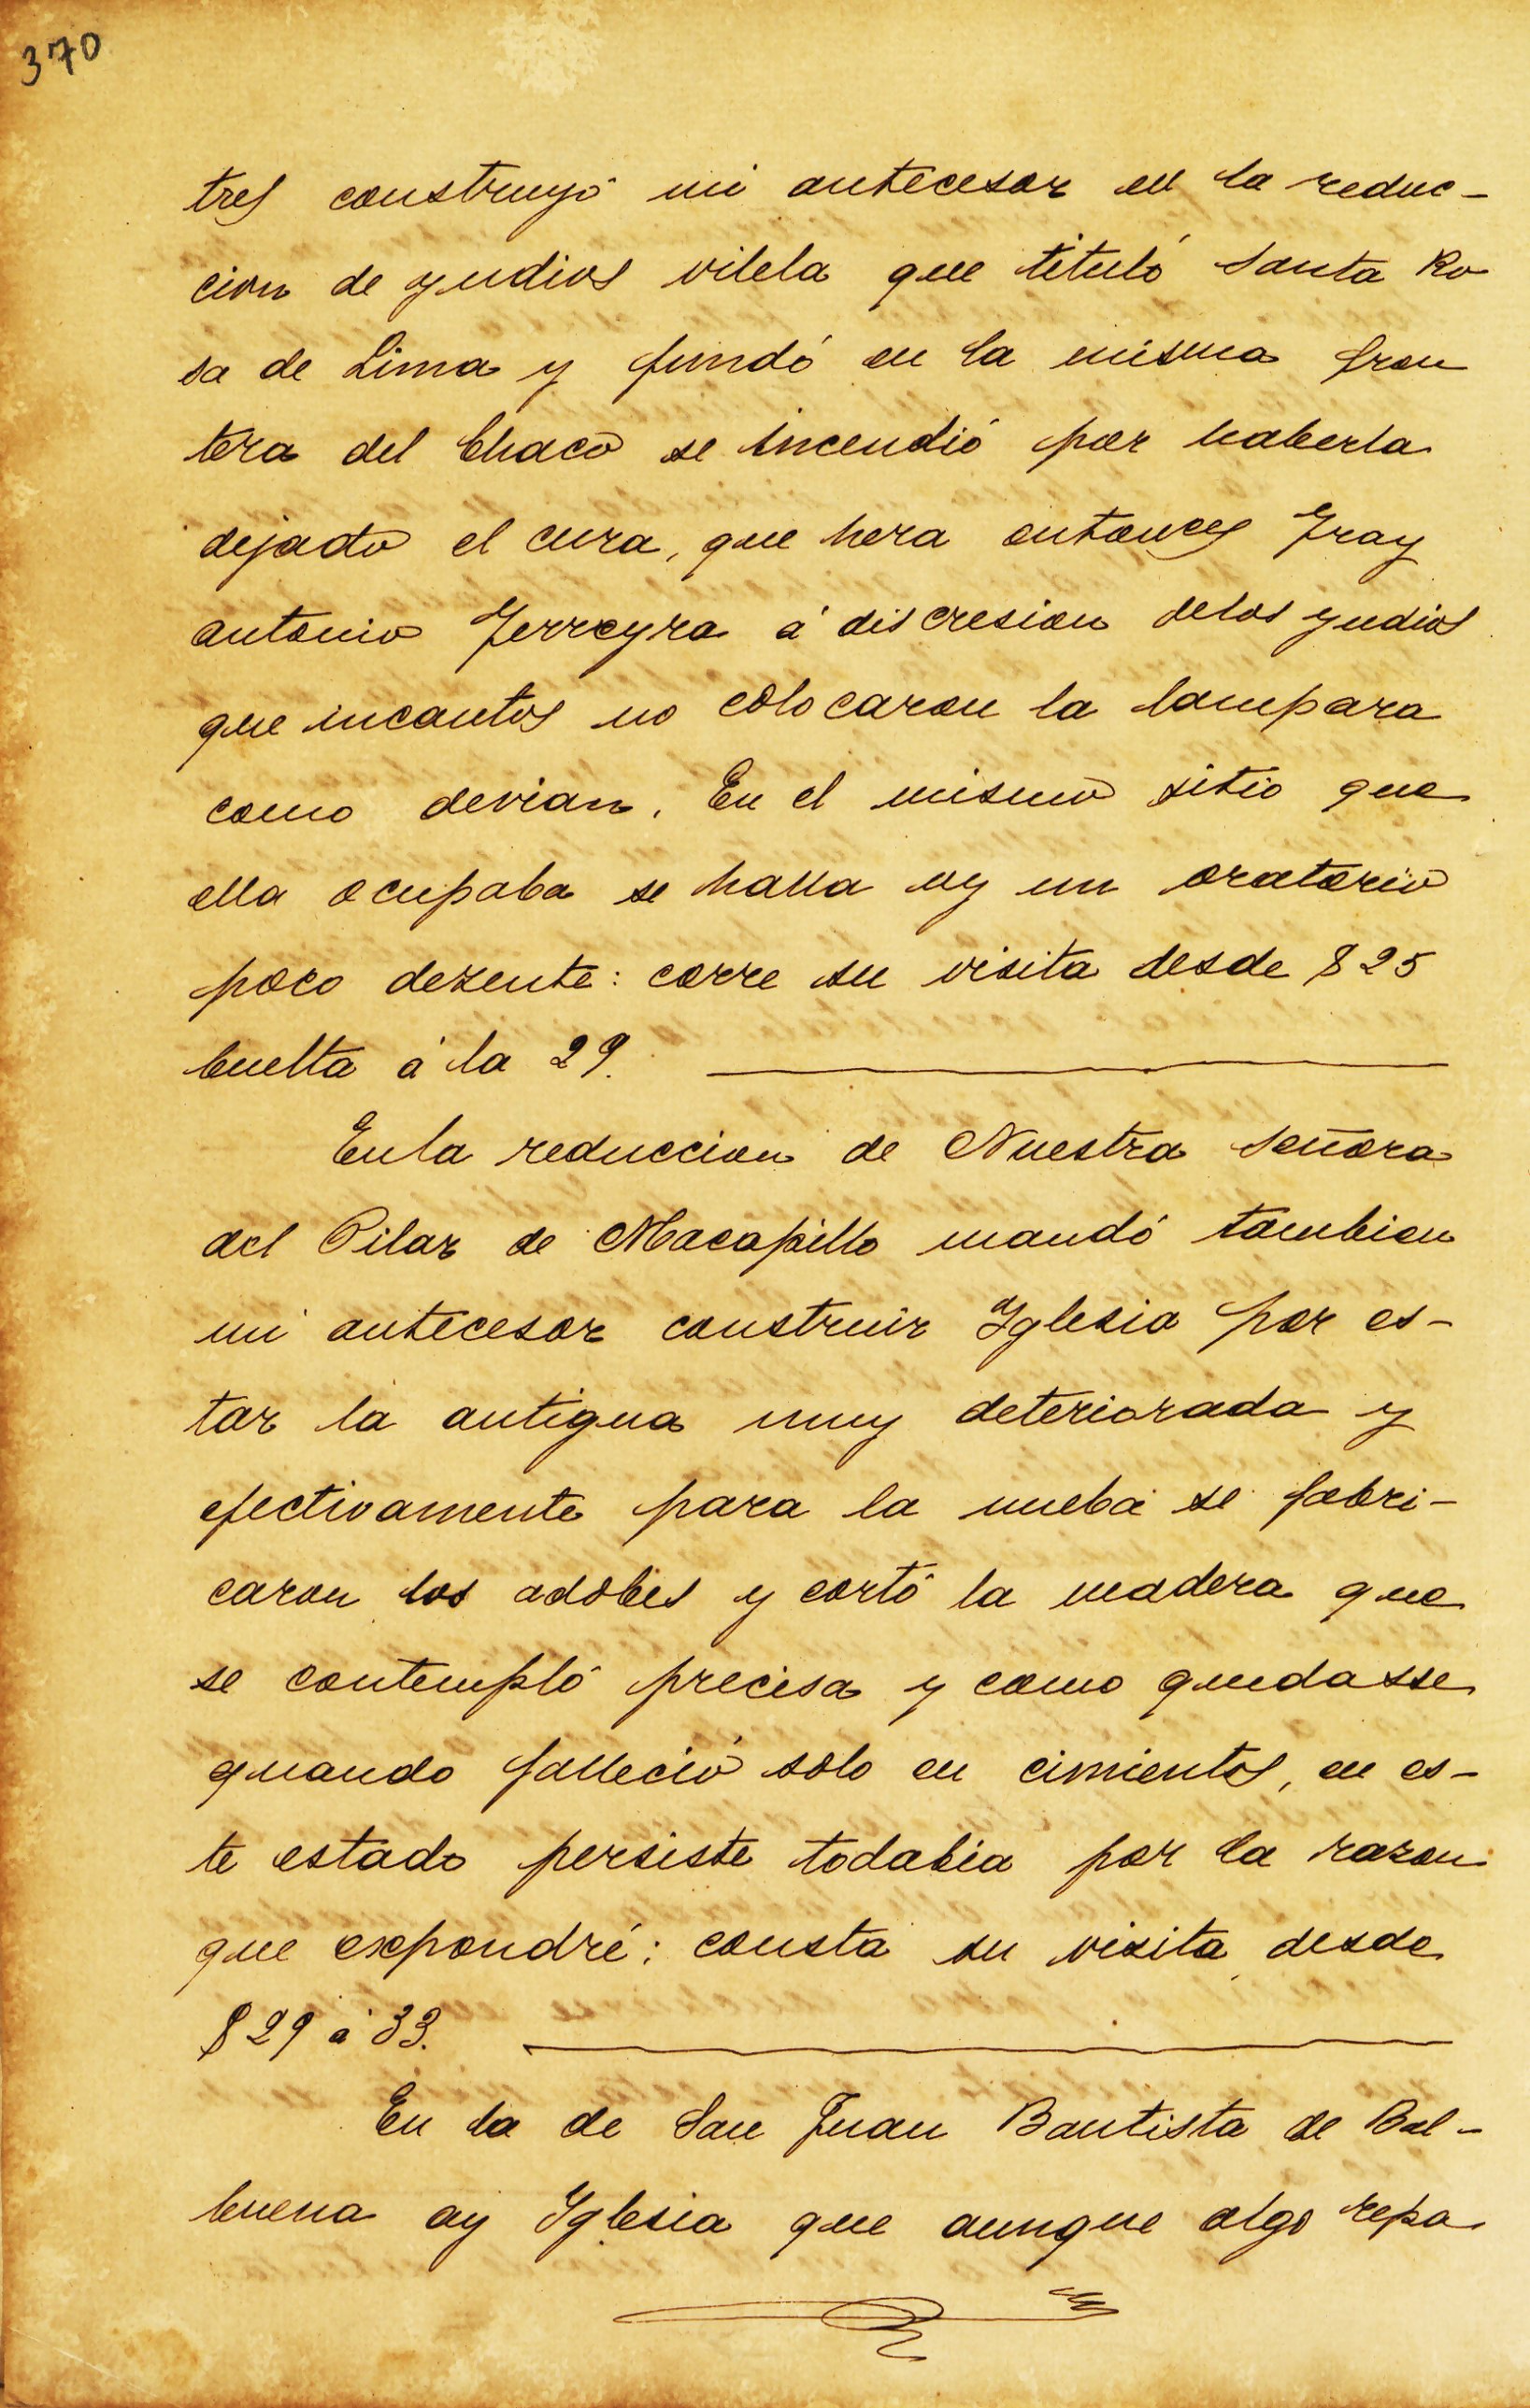 370
tres construyó mi antecesor en la reduc-
cion de yndios vilela que tituló Santa Ro
sa de Lima y fundó en la misma fron
tera del Chaco se incendió por haberla
dejado el cura, que hera entonces Fray
antonio Ferreyra á discresion delos yndios
que incautos no colocaron la lampara
como devian. En el mismo sitio que
ella ocupaba se halla oy un oratorio
poco dezente: corre su visita desde 825
buelta á la 29.
Enla reduccion de Nuestra Señora
del Pilar de Macapillo mandó tambien
mi antecesor construir Yglesia por es-
tar la antigua muy deteriorada y
efectivamente para la nueba se fabri-
caron los adobes y cortó la madera que
se contempló precisa y como quedasse
quando falleció solo en cimientos, en es-
te estado persiste todabia por la razon
que expondré: consta su visita desde
829 á 33.
En la de San Juan Bautista de Bal-
buena ay Yglesia que aunque algo repa